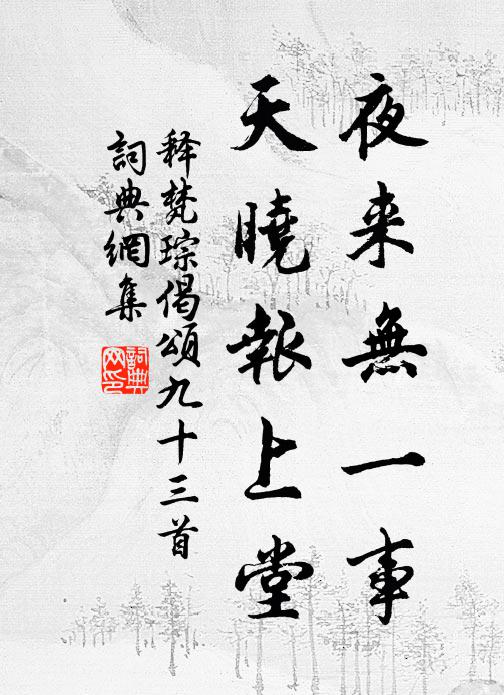 夜来無一事
天曉報上堂
释梵琮偈頌九十三首
詞典網集
詞典
网印